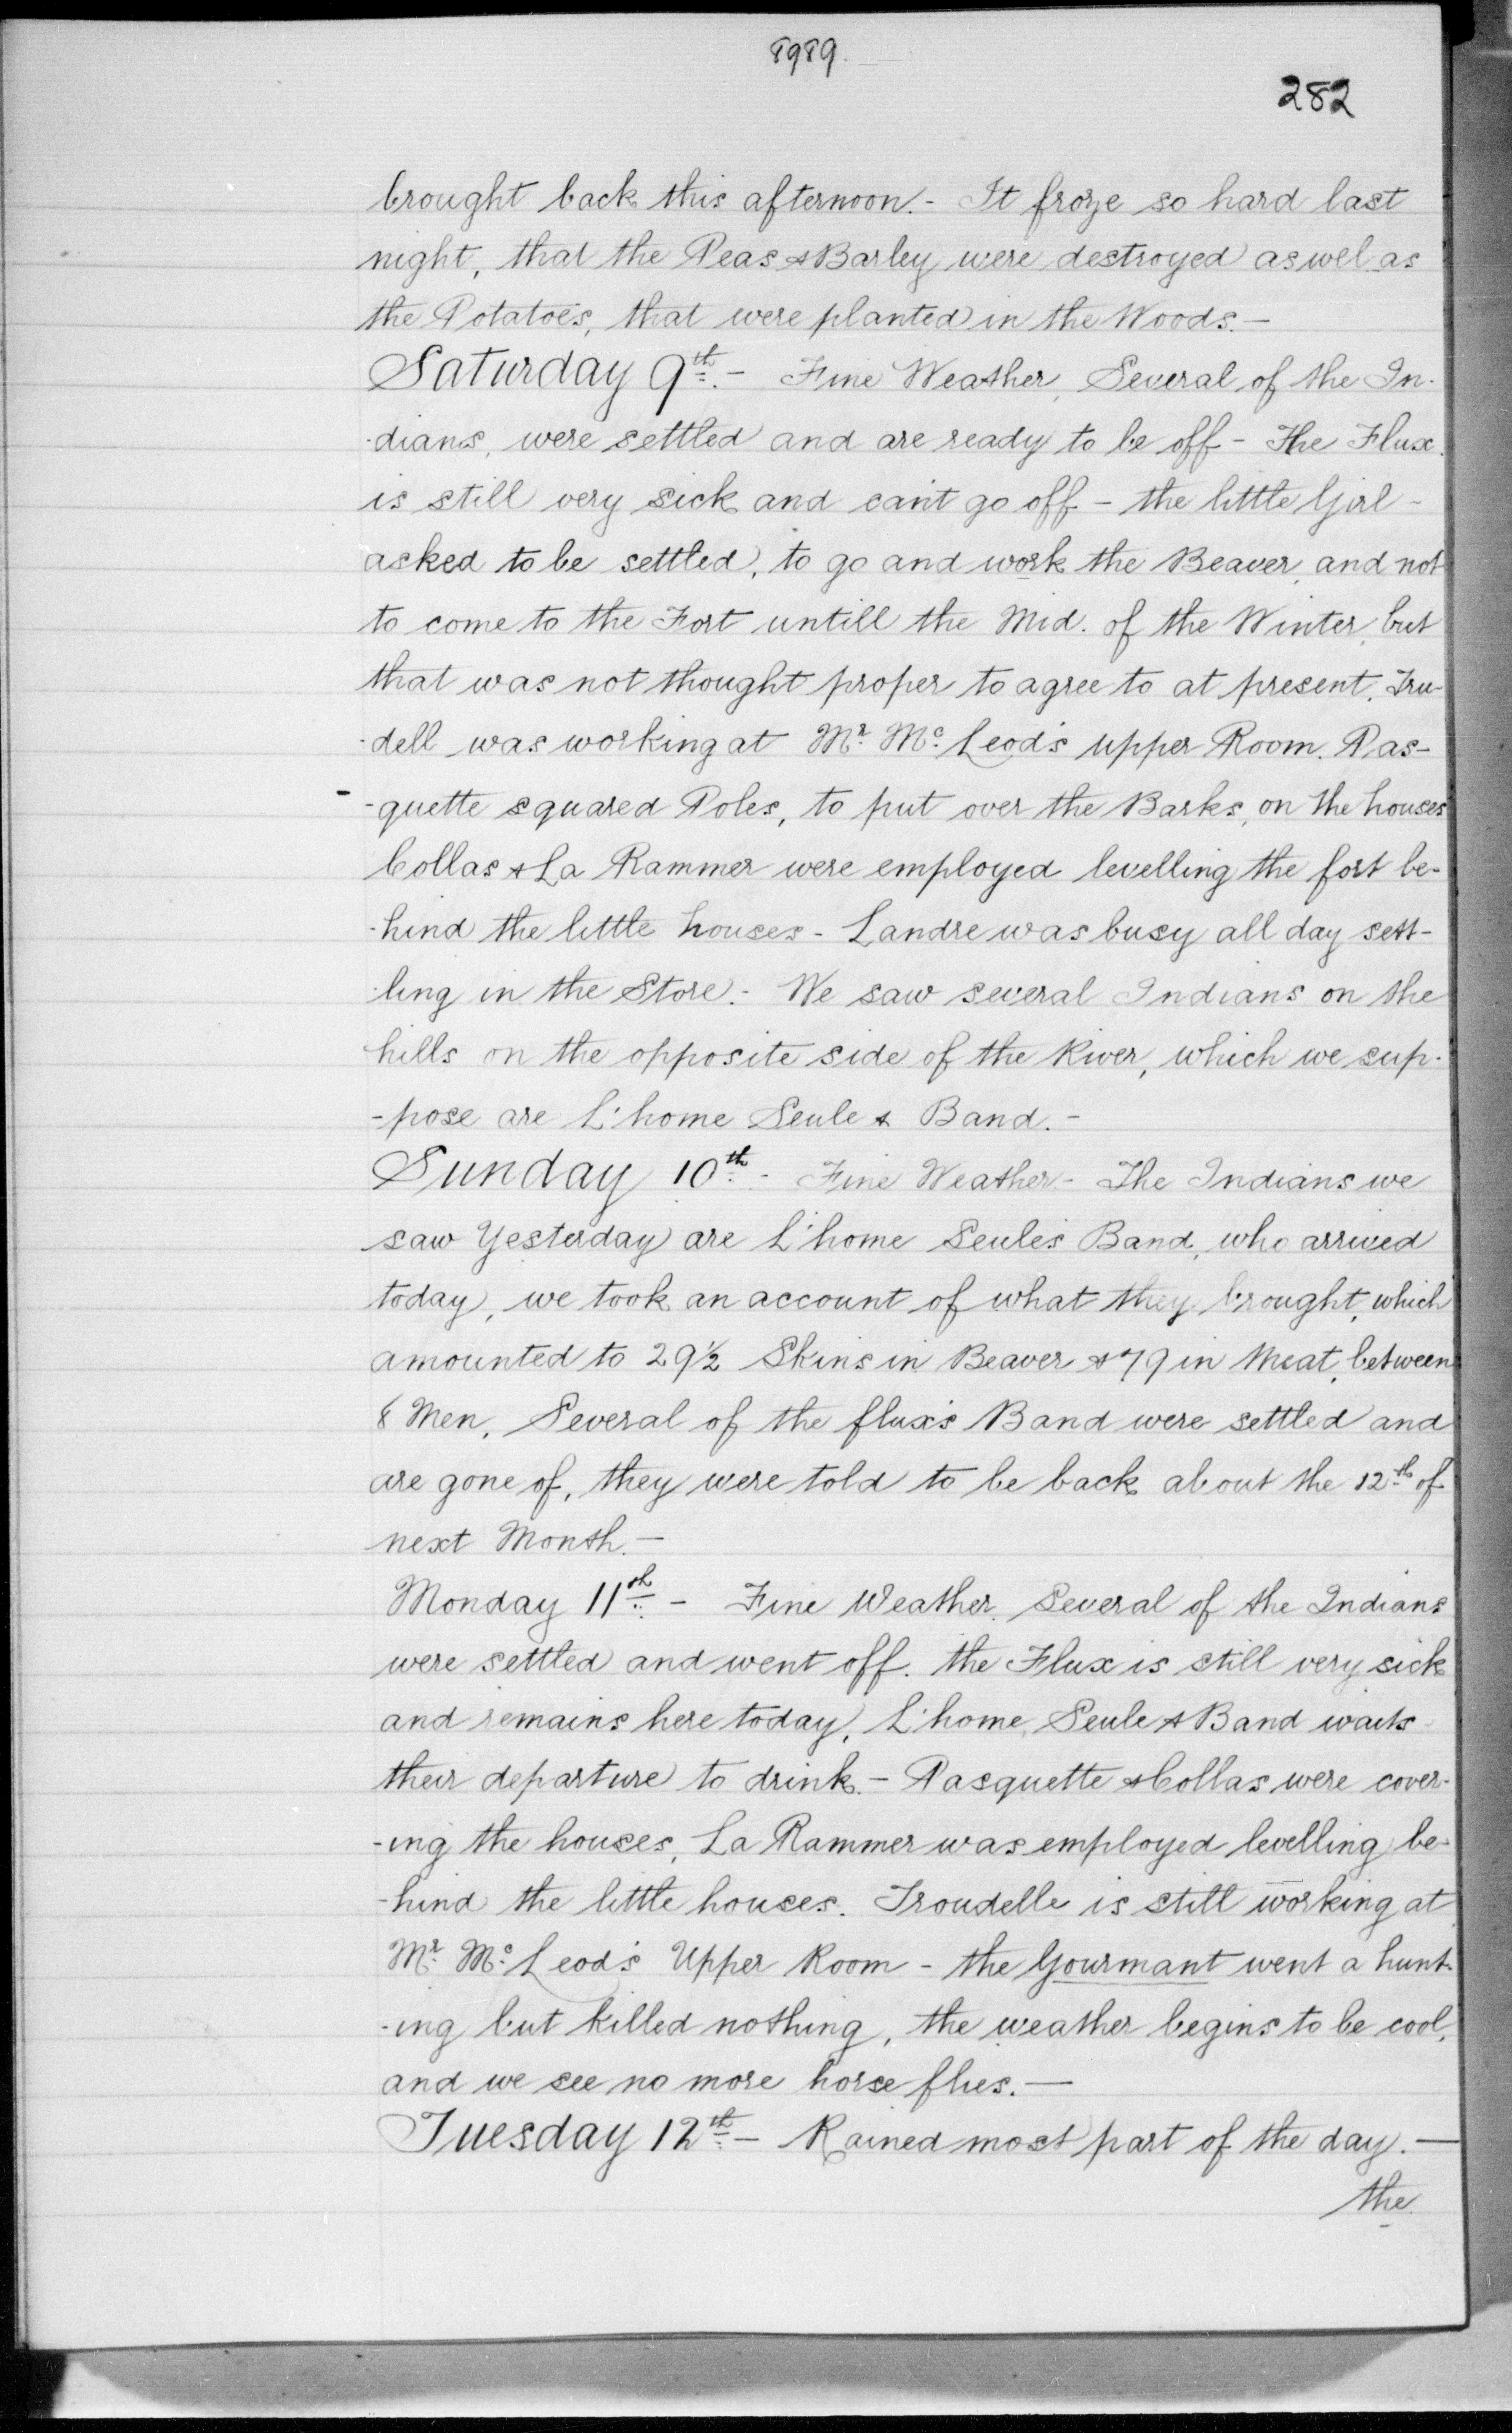 8989.
282
brought back this afternoon.- It froze so hard last
night, that the Peas & Barley were destroyed as wel as
the Potatoes, that were planted in the Woods.-
Saturday 9th.- Fine Weather, Several of the In-
-dians, were settled and are ready to be off - The Flux
is still very sick and can't go off - the little Girl -
asked to be settled, to go and work the Beaver, and not
to come to the Fort untill the Mid. of the Winter, but
that was not thought proper to agree to at present. Tru-
-dell was working at Mr. Mc. Leod's upper Room. Pas-
-quette squared Poles, to put over the Barks, on the houses
Collas & La Rammer were employed levelling the fort be-
-hind the little houses - Landre was busy all day sett-
-ling in the Store.- We saw several Indians on the
hills on the opposite side of the River, which we sup-
-pose are L'home Seule & Band.-
Sunday 10th.- Fine Weather - The Indians we
saw Yesterday are L'home Seule's Band, who arrived
today, we took an account of what they brought, which
amounted to 29½ Skins in Beaver & 79 in Meat, between
8 Men, Several of the flux's Band were settled and
are gone of, they were told to be back about the 12th of
next Month.-
Monday 11th - Fine Weather. Several of the Indians
were settled and went off. the Flux is still very sick
and remains here today, L'home Seule & Band waits
their departure to drink.- Pasquette & Collas were cover-
-ing the houses, La Rammer was employed levelling be-
-hind the little houses. Troudelle is still working at
Mr. Mc. Leod's Upper Room - the Gourmant went a hunt-
-ing but killed nothing, the weather begins to be cool,
and we see no more horse flies.-
Tuesday 12th - Rained most part of the day.-
the